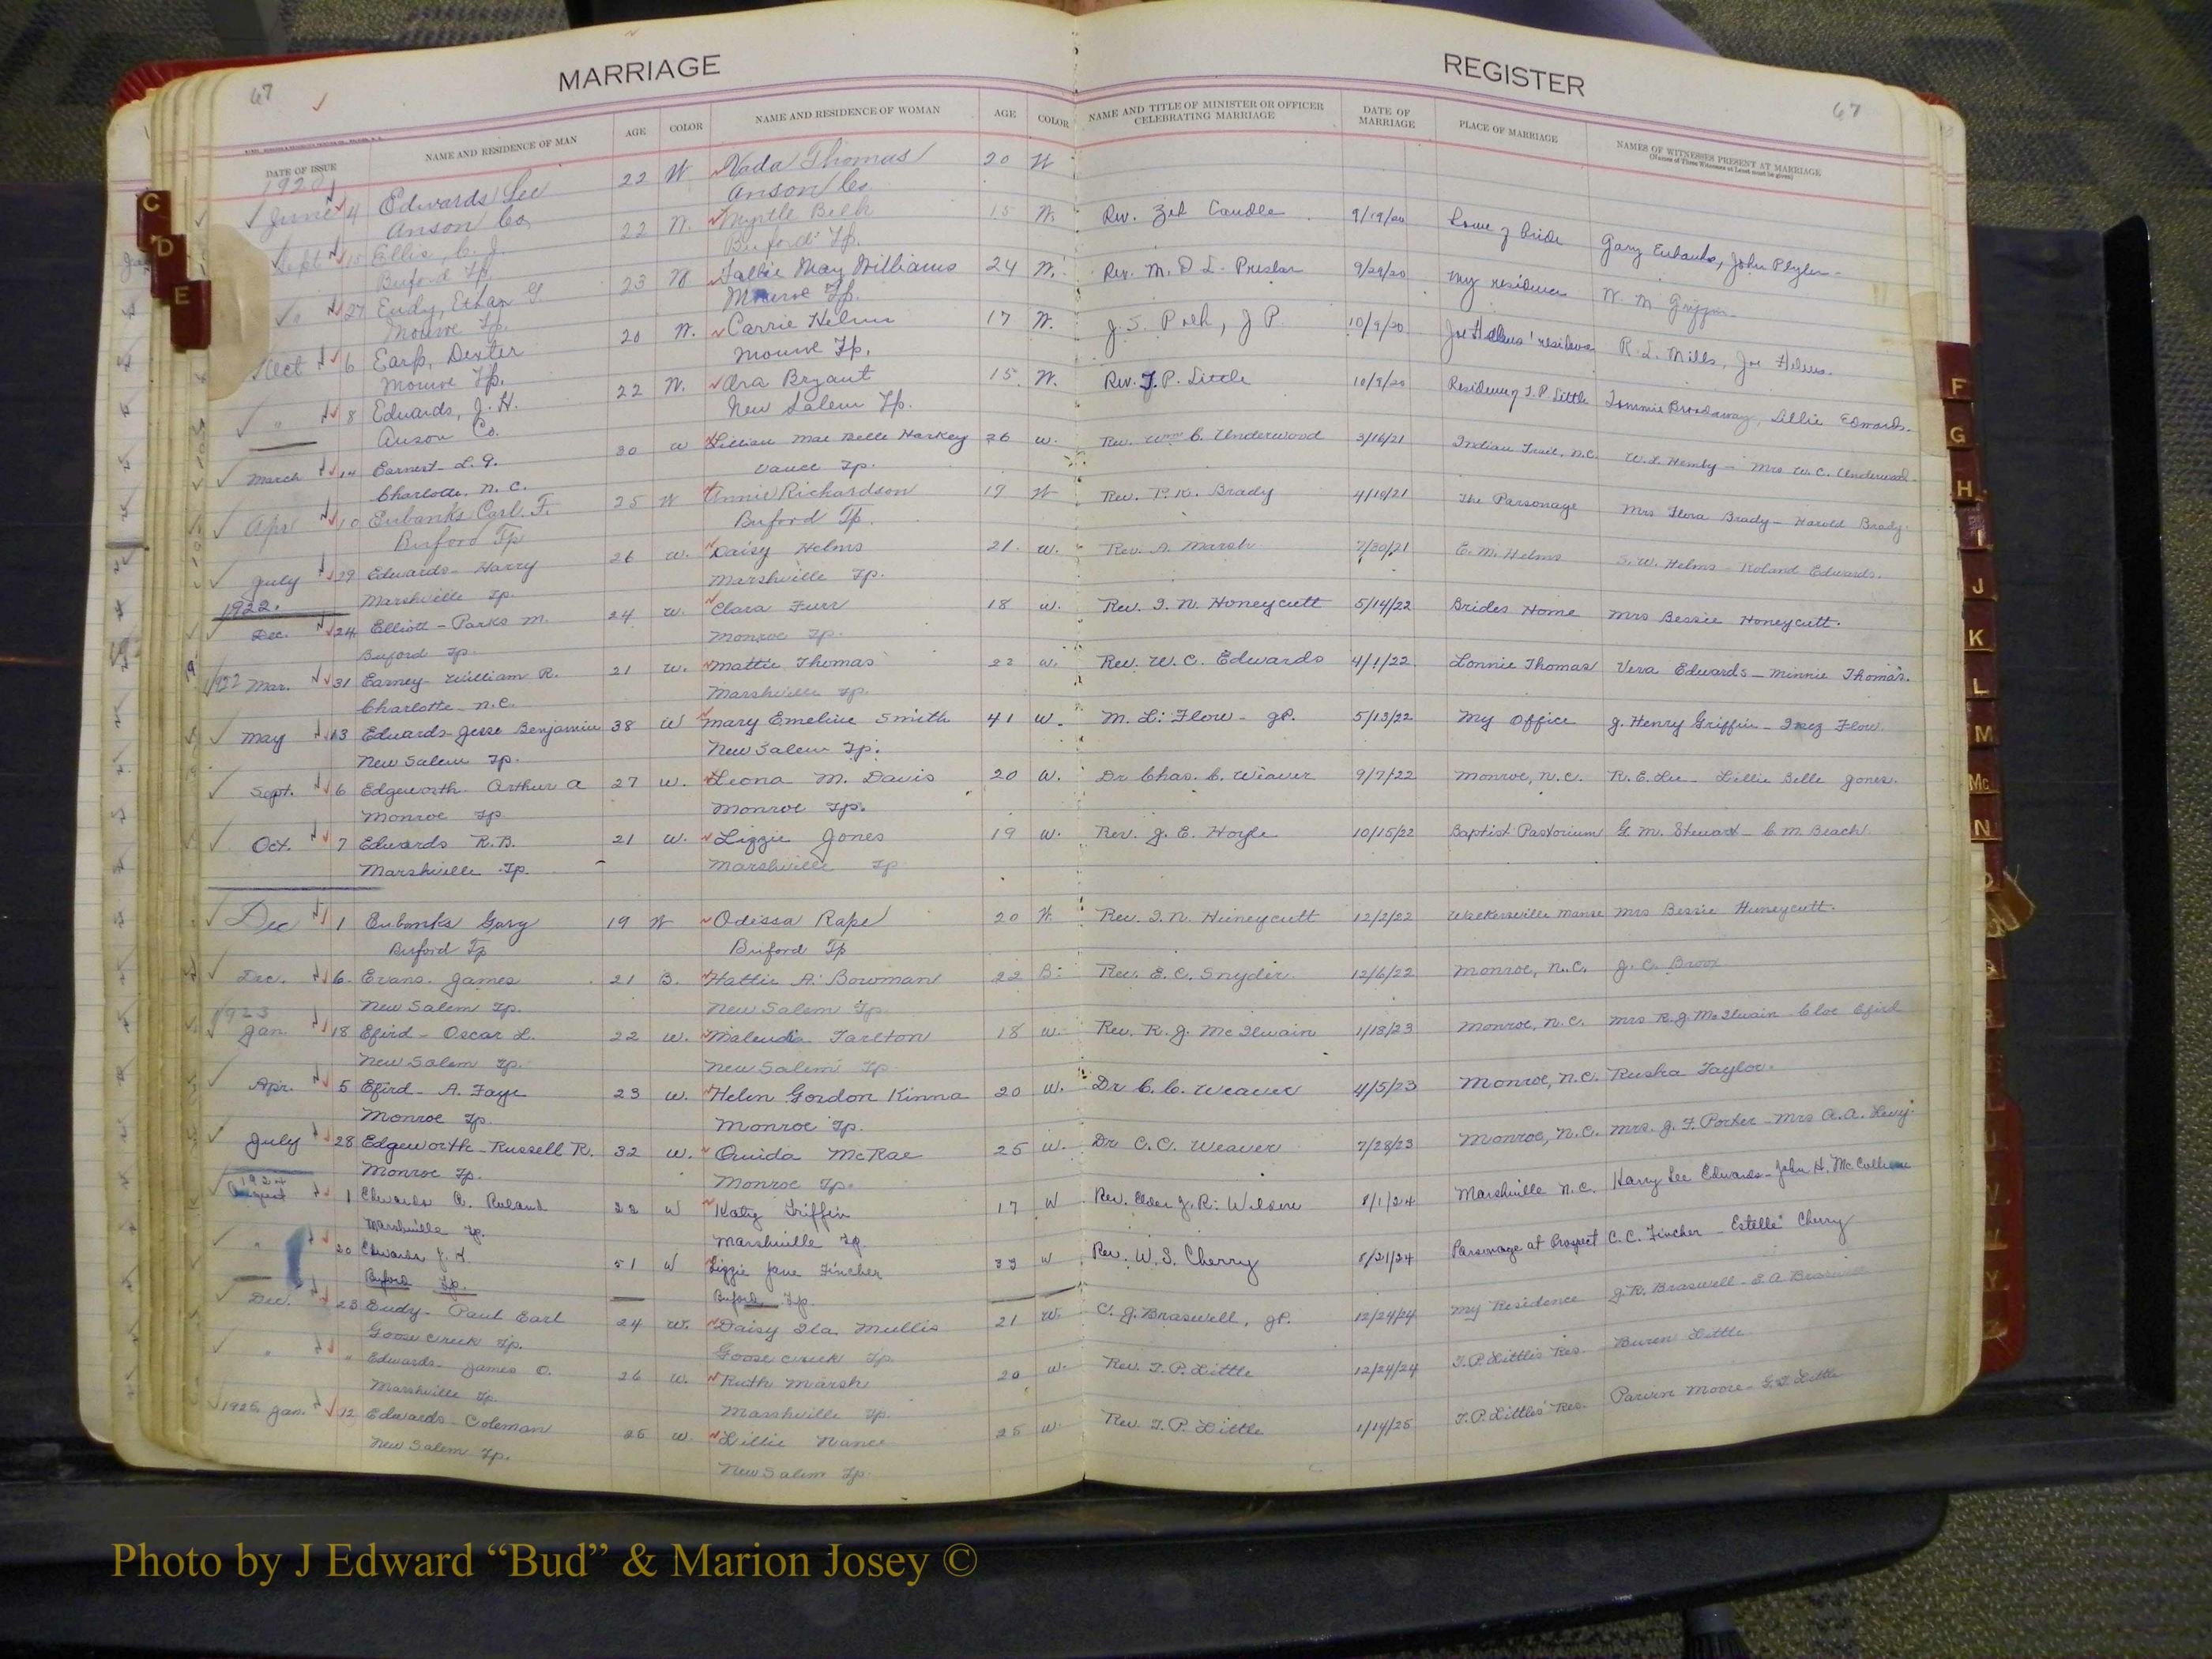 MARRIAGE REGISTER
67 67
DATE OF ISSUE NAME AND RESIDENCE OF MAN AGE COLOR NAME AND RESIDENCE OF WOMAN AGE COLOR NAME AND TITLE OF MINISTER OR OFFICER CELEBRATING MARRIAGE DATE OF MARRIAGE PLACE OF MARRIAGE NAMES OF WITNESSES PRESENT AT MARRIAGE
(Names of Three Witnesses at Least must be given)
1920
June 4 Edwards Lee 22 W Nada Thomas 20 W
Anson Co. Anson Co
Sept 15 Ellis, C. J. 22 W. Myrtle Belk 15 W. Rev. Zeb Caudle 9/19/20 Home of bride Gary Eubanks, John Plyler
Buford Tp. Buford Tp.
" 27 Eudy, Ethan G. 23 W Sallie May Williams 24 W. Rev. M. D. L. Preslar 9/29/20 My residence W. M. Griffin
Monroe Tp. Monroe Tp.
Oct 6 Earp, Dexter 20 W. Carrie Helms 17 W. J. S. Plyler, J P. 10/9/20 Joe Helms' residence R. L. Mills, Joe Helms.
Monroe Tp. Monroe Tp.
" 8 Edwards, J. H. 22 W. Ora Bryant 15 W. Rev. J. P. Little 10/9/20 Residence of J. P. Little Tommie Broadaway, Lillie Edwards.
Anson Co. New Salem Tp.
March 14 Earnest L. G. 30 W Lillian Mae Belle Harkey 26 w. Rev. Wm C. Underwood 3/16/21 Indian Trail, N.C. W. L. Hemby - Mrs W. C. Underwood.
Charlotte, N.C. Vance Tp.
Apr 10 Eubanks Carl. F. 25 W Annie Richardson 17 W Rev. P. K. Brady 4/10/21 The Parsonage Mrs Flora Brady - Harold Brady.
Buford Tp Buford Tp.
July 29 Edwards - Harry 26 w. Daisy Helms 21. w. Rev. A. Marsh 7/30/21 E. M. Helms S. W. Helms - Roland Edwards.
Marshville Tp. Marshville Tp.
1922.
Dec. 24 Elliott - Parks M. 24 w. Clara Furr 18 w. Rev. I. N. Honeycutt 5/14/22 Brides Home Mrs Bessie Honeycutt.
Buford Tp. Monroe Tp.
1922 Mar. 31 Earney - William R. 21 w. Mattie Thomas 22 w. Rev. W. C. Edwards 4/1/22 Lonnie Thomas Vera Edwards - Minnie Thomas.
Charlotte - N.C. Marshville Tp.
May 13 Edwards - Jesse Benjamin 38 W Mary Emeline Smith 41 w. M. L. Flow - J.P. 5/13/22 My Office J. Henry Griffin - Inez Flow.
New Salem Tp. New Salem Tp.
Sept. 6 Edgeworth - Arthur A 27 w. Leona M. Davis 20 w. Dr Chas. C. Weaver 9/7/22 Monroe, N.C. R. E. Lee - Lillie Belle Jones.
Monroe Tp Monroe Tp.
Oct. 7 Edwards R. B. 21 w. Lizzie Jones 19 w. Rev. J. E. Hoyle 10/15/22 Baptist Pastorium G. M. Stewart - C. M. Beach
Marshville Tp. Marshville Tp
Dec 1 Eubanks Gary 19 W Odessa Rape 20 W. Rev. I. N. Huneycutt 12/2/22 Weekersville Manse Mrs Bessie Huneycutt.
Buford Tp Buford Tp
Dec. 6. Evans. James 21 B. Hattie A. Bowman 22 B. Rev. E. C. Snyder. 12/6/22 Monroe, N.C. J. C. Broox
New Salem Tp. New Salem Tp.
1923
Jan. 18 Efird - Oscar L. 22 w. Malenda Tarlton 18 w. Rev. R. J. McIlwain 1/18/23 Monroe, N.C. Mrs R. J. McIlwain - Cloe Efird
New Salem Tp. New Salem Tp
Apr. 5 Efird - A. Faye 23 w. Helen Gordon Kinna 20 w. Dr C. C. Weaver 4/5/23 Monroe, N.C. Ruska Taylor.
Monroe Tp. Monroe Tp.
July 28 Edgeworth - Russell R. 32 w. Ouida McRae 25 w. Dr C. C. Weaver 7/28/23 Monroe, N.C. Mrs. J. F. Porter - Mrs A. A. Levy.
Monroe Tp. Monroe Tp.
1924
August 1 Edwards C. Ruland 22 W Katy Griffin 17 W Rev. Elder J. R. Wilson 8/1/24 Marshville N.C. Harry Lee Edwards - John H. McCollum
Marshville Tp. Marshville Tp.
" 20 Edwards J. T 51 W Lizzie Jane Fincher 33 W Rev. W. S. Cherry 8/21/24 Parsonage at Prospect C. C. Fincher - Estelle Cherry
Buford Tp. Buford Tp.
Dec. 23 Eudy - Paul Earl 24 w. Daisy Ila Mullis 21 w. C. J. Braswell, J.P. 12/24/24 My Residence J. R. Braswell - E. A. Braswell
Goose Creek Tp. Goose Creek Tp.
" " Edwards - James O. 26 w. Ruth Marsh 20 w. Rev. J. P. Little 12/24/24 J. P. Littles Res. Buren Little
Marshville Tp. Marshville Tp.
1925 Jan. 12 Edwards - Coleman 25 w. Lillie Nance 25 w. Rev. J. P. Little 1/14/25 J. P. Littles' Res. Parson Moore - G. T. Little
New Salem Tp. New Salem Tp.
C
D
E
F
G
H
I
J
K
L
M
Mc
N
Photo by J Edward “Bud” & Marion Josey ©